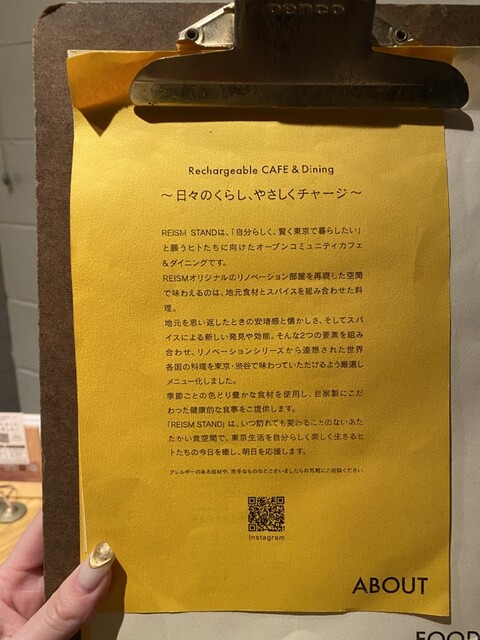 penco
Rechargeable CAFE & Dining
〜日々のくらし、やさしくチャージ〜
REISM STANDは、「自分らしく、賢く東京で暮らしたい」
と願うヒトたちに向けたオープンコミュニティカフェ
&ダイニングです。
REISMオリジナルのリノベーション部屋を再現した空間
で味わえるのは、地元食材とスパイスを組み合わせた料
理。
地元を思い返したときの安堵感と懐かしさ、そしてスパ
イスによる新しい発見や効能。そんな2つの要素を組み
合わせ、リノベーションシリーズから連想された世界
各国の料理を東京・渋谷で味わっていただけるよう厳選し
メニュー化しました。
季節ごとの色どり豊かな食材を使用し、自家製にこだ
わった健康的な食事をご提供します。
「REISM STAND」は、いつ訪れても変わることのないあた
たかい食空間で、東京生活を自分らしく楽しく生きるヒ
トたちの今日を癒し、明日を応援します。
アレルギーのある食材や、苦手なものなどございましたらお気軽にご相談ください
Instagram
ABOUT
FOOD